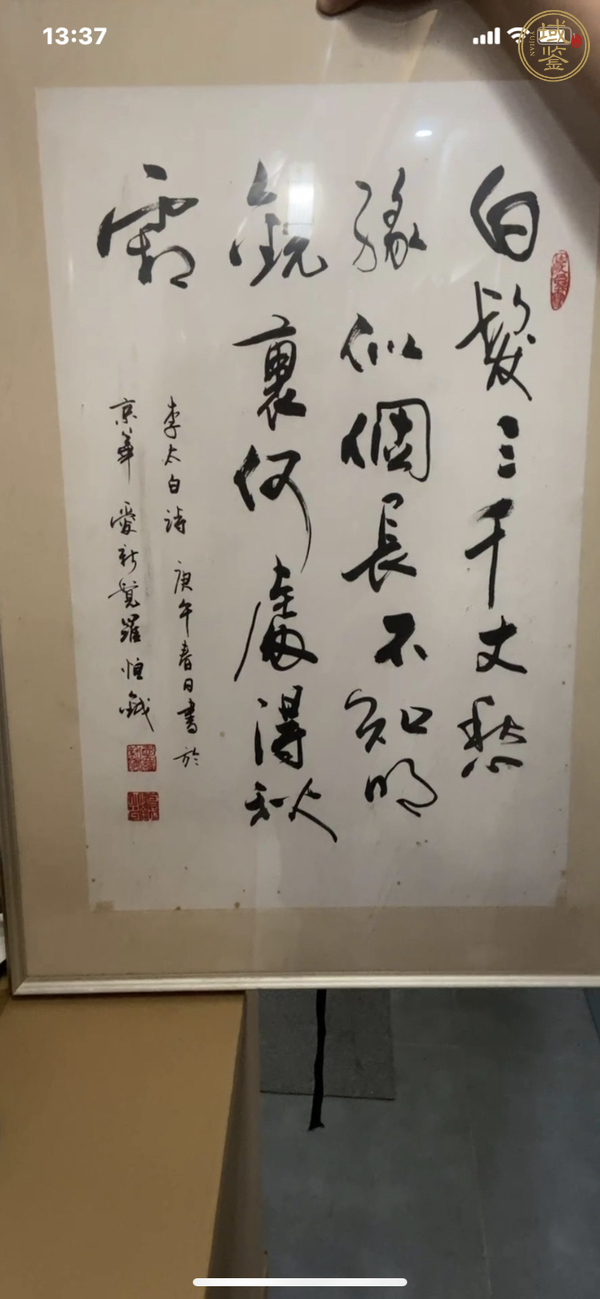 13:37
域鉴
YUJIAN
白髮三千丈愁
緣似個長不知明
鏡裏何處得秋
霜
李太白詩 庚午春日書於
京華 愛新覺羅恒鉞